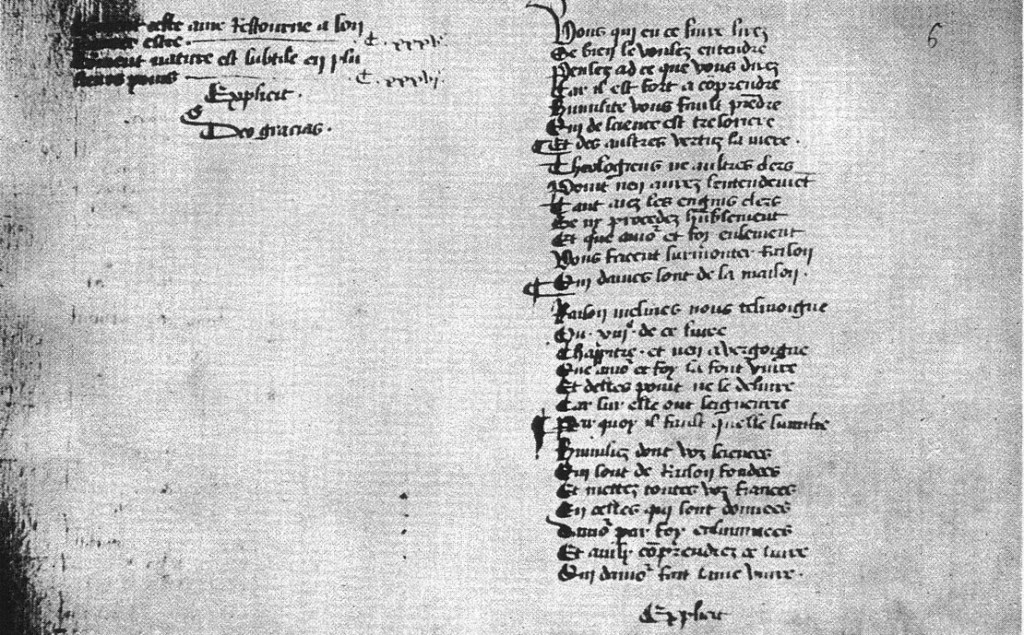 ceste ame Retourne a son
premier estre .
Comment nature est subtile en plu
sieurs poins
Explicit .
Deo gracias .
Vous qui en ce livre lirez
Se bien le voulez entendre
Pensez ad ce que vous direz
Car il est fort a cõprendre
Humilite vous fault prẽdre
Qui de science est tresoriere
Et des aultres vertuz la mere .
Theologiens ne aultres clers
Point nen aurez lentendement
Tant aiez les engins clers
Se ny procedez hũblement
Et que amo᷑ et foy ensement
Vous facent surmonter Raison
Qui dames sont de la maison .
Raison mesmes nous tesmoigne
Ou . xiii᷎ . de ce livre
Chappitre . et nen a vergoigne
Que amo᷑ et foy la font vivre
Et delles point ne se delivre
Car sur elle ont seigneurie
Par quoy il fault quelle sumilie
Humiliez dont voz sciences
Qui sont de Raison fondees
Et mettez toutes voz fiances
En celles qui sont donnees
Damo᷑ par foy enluminees
Et ainsy cõprendrez ce livre
Qui damo᷑ fait lame vivre .
Explicit
6